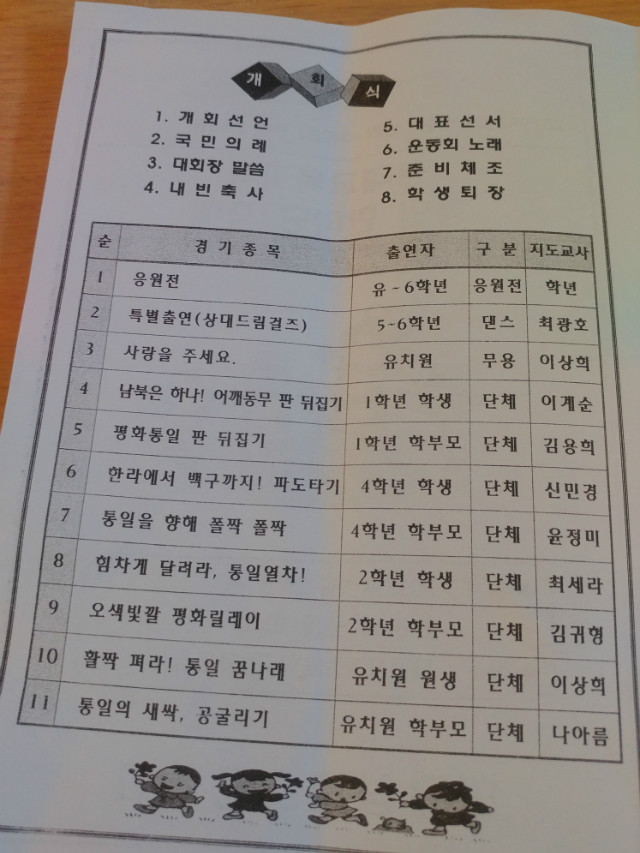 개 회 식
1. 개 회 선 언
2. 국 민 의 례
3. 대회장 말씀
4. 내 빈 축 사
5. 대 표 선 서
6. 운동회 노래
7. 준 비 체 조
8. 학 생 퇴 장
순 경 기 종 목 출연자 구 분 지도교사
1 응원전 유 - 6학년 응원전 학년
2 특별출연(상대드림걸즈) 5-6학년 댄스 최광호
3 사랑을 주세요. 유치원 무용 이상희
4 남북은 하나! 어깨동무 판 뒤집기 1학년 학생 단체 이계순
5 평화통일 판 뒤집기 1학년 학부모 단체 김용희
6 한라에서 백구까지! 파도타기 4학년 학생 단체 신민경
7 통일을 향해 폴짝 폴짝 4학년 학부모 단체 윤정미
8 힘차게 달려라, 통일열차! 2학년 학생 단체 최세라
9 오색빛깔 평화릴레이 2학년 학부모 단체 김귀형
10 활짝 펴라! 통일 꿈나래 유치원 원생 단체 이상희
11 통일의 새싹, 공굴리기 유치원 학부모 단체 나아름